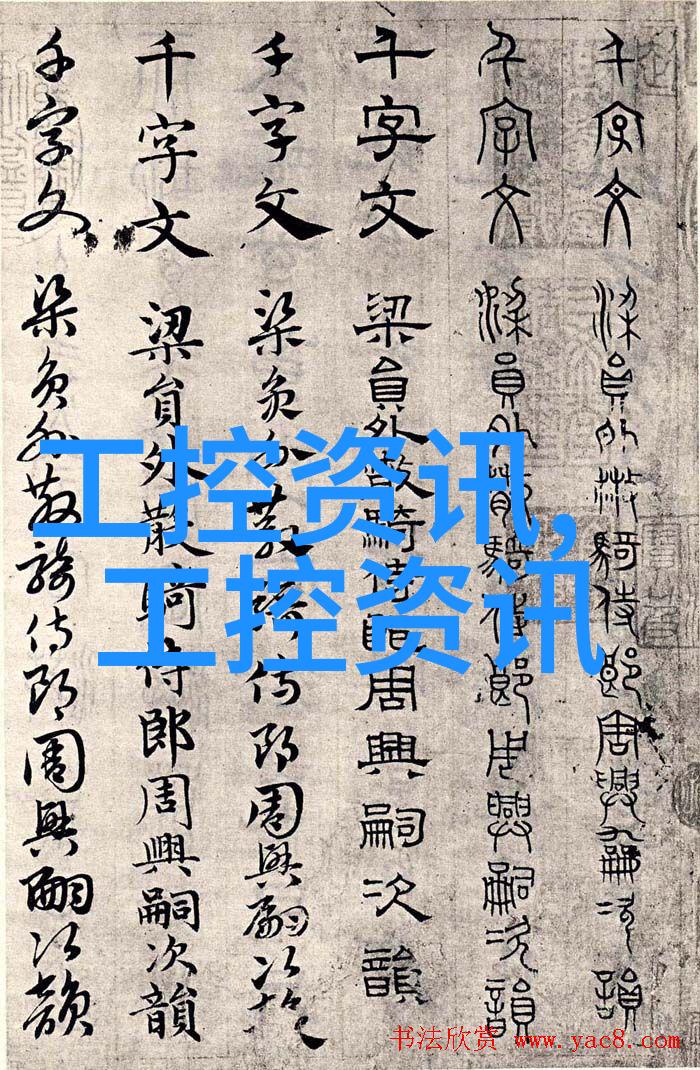 千字文 梁員外散騎侍郎周興嗣次韻
千字文 梁員外散騎侍郎周興嗣次韻
千字文 梁員外散騎侍郎周興嗣次韻
千字文 梁員外散騎侍郎周興嗣次韻
千字文 梁員外散騎侍郎周興嗣次韻
千字文 梁員外散騎侍郎周興嗣次韻
工控资讯,
工控资讯
书法欣赏 www.yac8.com